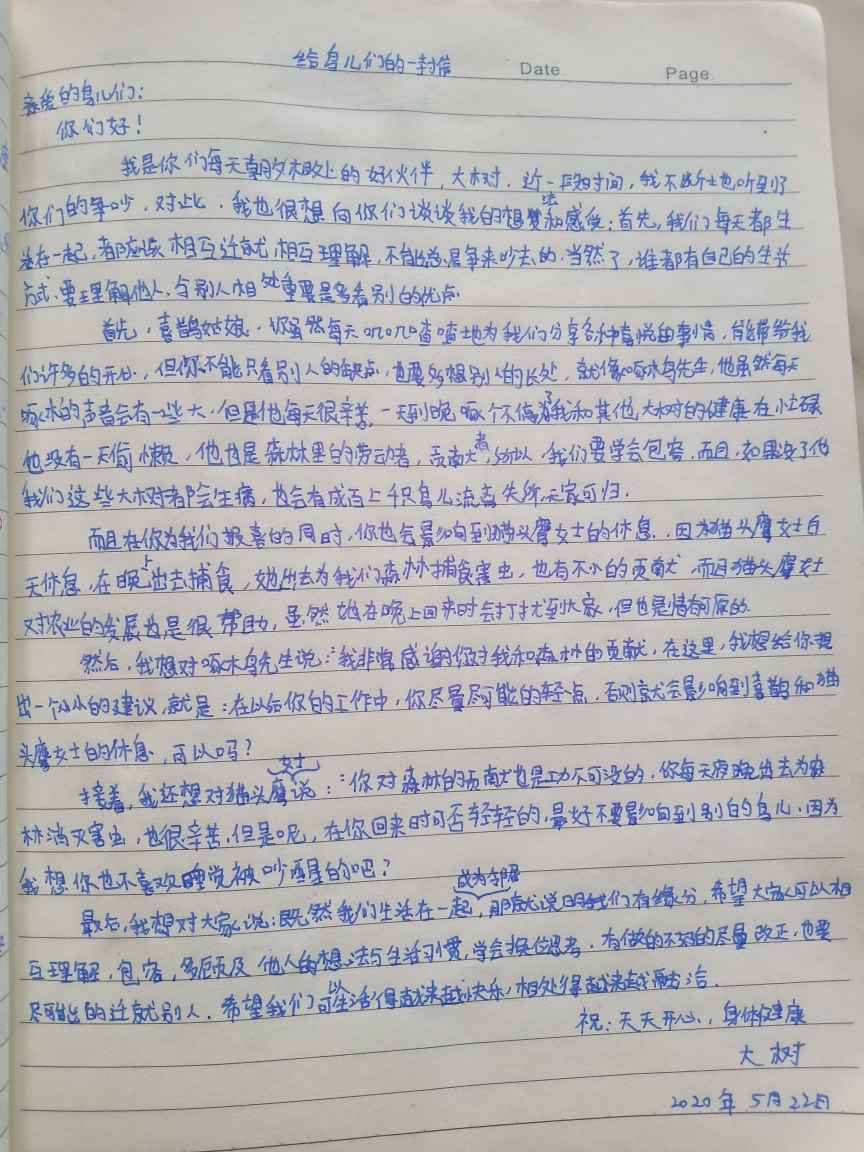 给鸟儿们的一封信 Date Page
亲爱的鸟儿们:
你们好!
我是你们每天朝夕相处的好伙伴,大树.近一段时间,我不断地听到了
你们的争吵.对此.我也很想向你们谈谈我的想法和感受:首先,我们每天都生
活在一起,都应该相互迁就相互理解,不能总是争来吵去的.当然了,谁都有自己的生活
方式.要理解他人.与别人相处重要是多看别的优点.
首先,喜鹊姑娘.你虽然每天叽叽喳喳地为我们分享各种喜悦的事情,能带给我
们许多的开心,但你不能只看别人的缺点,也要多想别人的长处,就像啄木鸟先生,他虽然每天
啄木的声音会有一些大.但是他每天很辛苦,一天到晚啄个不停为了我和其他大树的健康在忙碌
他没有一天偷懒,他也是森林里的劳动者,贡献者,所以,我们要学会包容.而且,如果没了他
我们这些大树都会生病,也会有成百上千只鸟儿流离失所,无家可归.
而且在你为我们报喜的同时,你也会影响到猫头鹰女士的休息..因为猫头鹰女士白
天休息,在晚上出去捕食,她出去为我们森林捕食害虫,也有不小的贡献,而且猫头鹰女士
对农业的发展也是很帮助,虽然她在晚上回来时会打扰到大家,但也是情有可原的.
然后,我想对啄木鸟先生说:"我非常感谢你对我和森林的贡献,在这里,我想给你提
出一个小小的建议,就是:在以后你的工作中,你尽量尽可能的轻点.否则就会影响到喜鹊和猫
头鹰女士的休息,可以吗?
接着,我还想对猫头鹰女士说:"你对森林的贡献也是功不可没的,你每天夜晚出去为森
林消灭害虫,也很辛苦.但是呢,在你回来时可否轻轻的,最好不要影响到别的鸟儿.因为
我想你也不喜欢睡觉被吵醒的吧?
最后,我想对大家说:既然我们生活在一起,成为邻居那就说明我们有缘分,希望大家可以相
互理解,包容,多顾及他人的想法与生活习惯,学会换位思考.有做的不对的尽量改正,也要
尽可能的迁就别人.希望我们可以生活得越来越快乐,相处得越来越融洽.
祝:天天开心,身体健康
大树
2020年5月22日